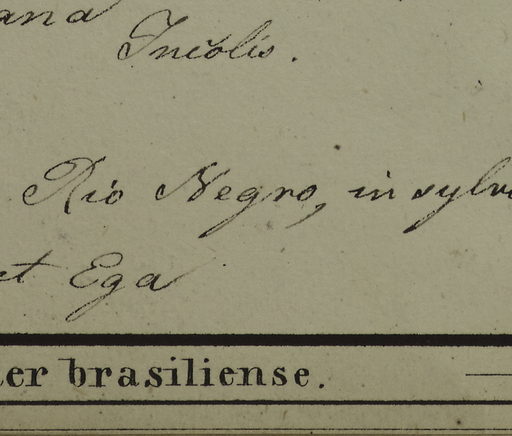 ana
Incolis.
Rio Negro, in sylv
et Ega
ter brasiliense.